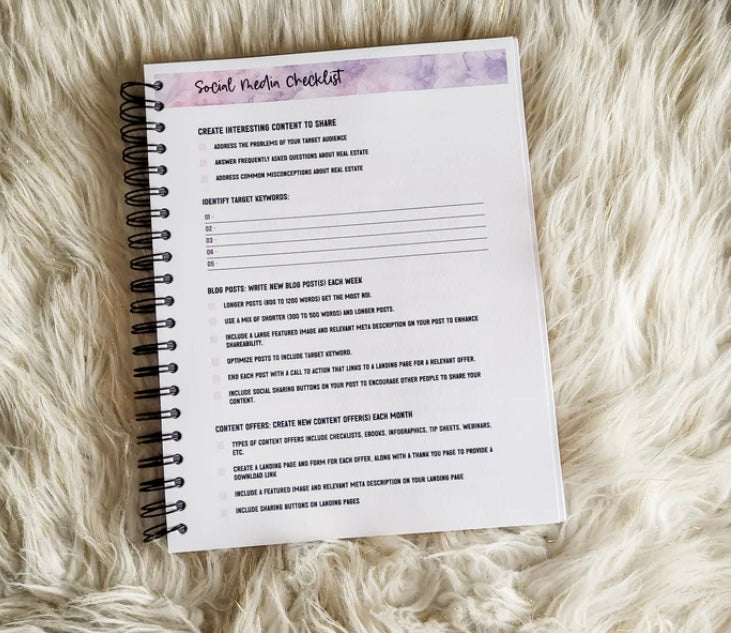 Social Media Checklist
CREATE INTERESTING CONTENT TO SHARE
ADDRESS THE PROBLEMS OF YOUR TARGET AUDIENCE
ANSWER FREQUENTLY ASKED QUESTIONS ABOUT REAL ESTATE
ADDRESS COMMON MISCONCEPTIONS ABOUT REAL ESTATE
IDENTIFY TARGET KEYWORDS:
01 -
02 -
03 -
04 -
05 -
BLOG POSTS: WRITE NEW BLOG POST(S) EACH WEEK
LONGER POSTS (800 TO 1200 WORDS) GET THE MOST ROI.
USE A MIX OF SHORTER (300 TO 500 WORDS) AND LONGER POSTS.
INCLUDE A LARGE FEATURED IMAGE AND RELEVANT META DESCRIPTION ON YOUR POST TO ENHANCE
SHAREABILITY.
OPTIMIZE POSTS TO INCLUDE TARGET KEYWORD.
END EACH POST WITH A CALL TO ACTION THAT LINKS TO A LANDING PAGE FOR A RELEVANT OFFER.
INCLUDE SOCIAL SHARING BUTTONS ON YOUR POST TO ENCOURAGE OTHER PEOPLE TO SHARE YOUR
CONTENT.
CONTENT OFFERS: CREATE NEW CONTENT OFFER(S) EACH MONTH
TYPES OF CONTENT OFFERS INCLUDE CHECKLISTS, EBOOKS, INFOGRAPHICS, TIP SHEETS, WEBINARS,
ETC.
CREATE A LANDING PAGE AND FORM FOR EACH OFFER, ALONG WITH A THANK YOU PAGE TO PROVIDE A
DOWNLOAD LINK
INCLUDE A FEATURED IMAGE AND RELEVANT META DESCRIPTION ON YOUR LANDING PAGE
INCLUDE SHARING BUTTONS ON LANDING PAGES